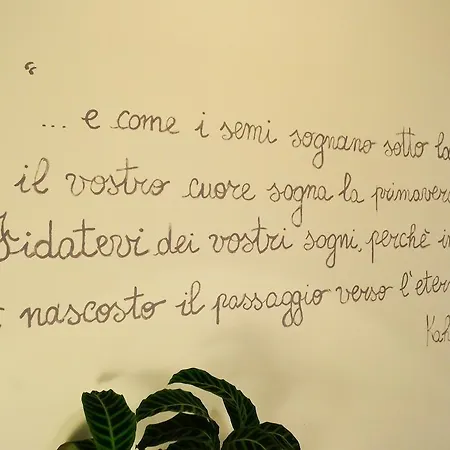 “
... e come i semi sognano sotto la
il vostro cuore sogna la primavera
Fidatevi dei vostri sogni, perchè in
nascosto il passaggio verso l'eter
Kah